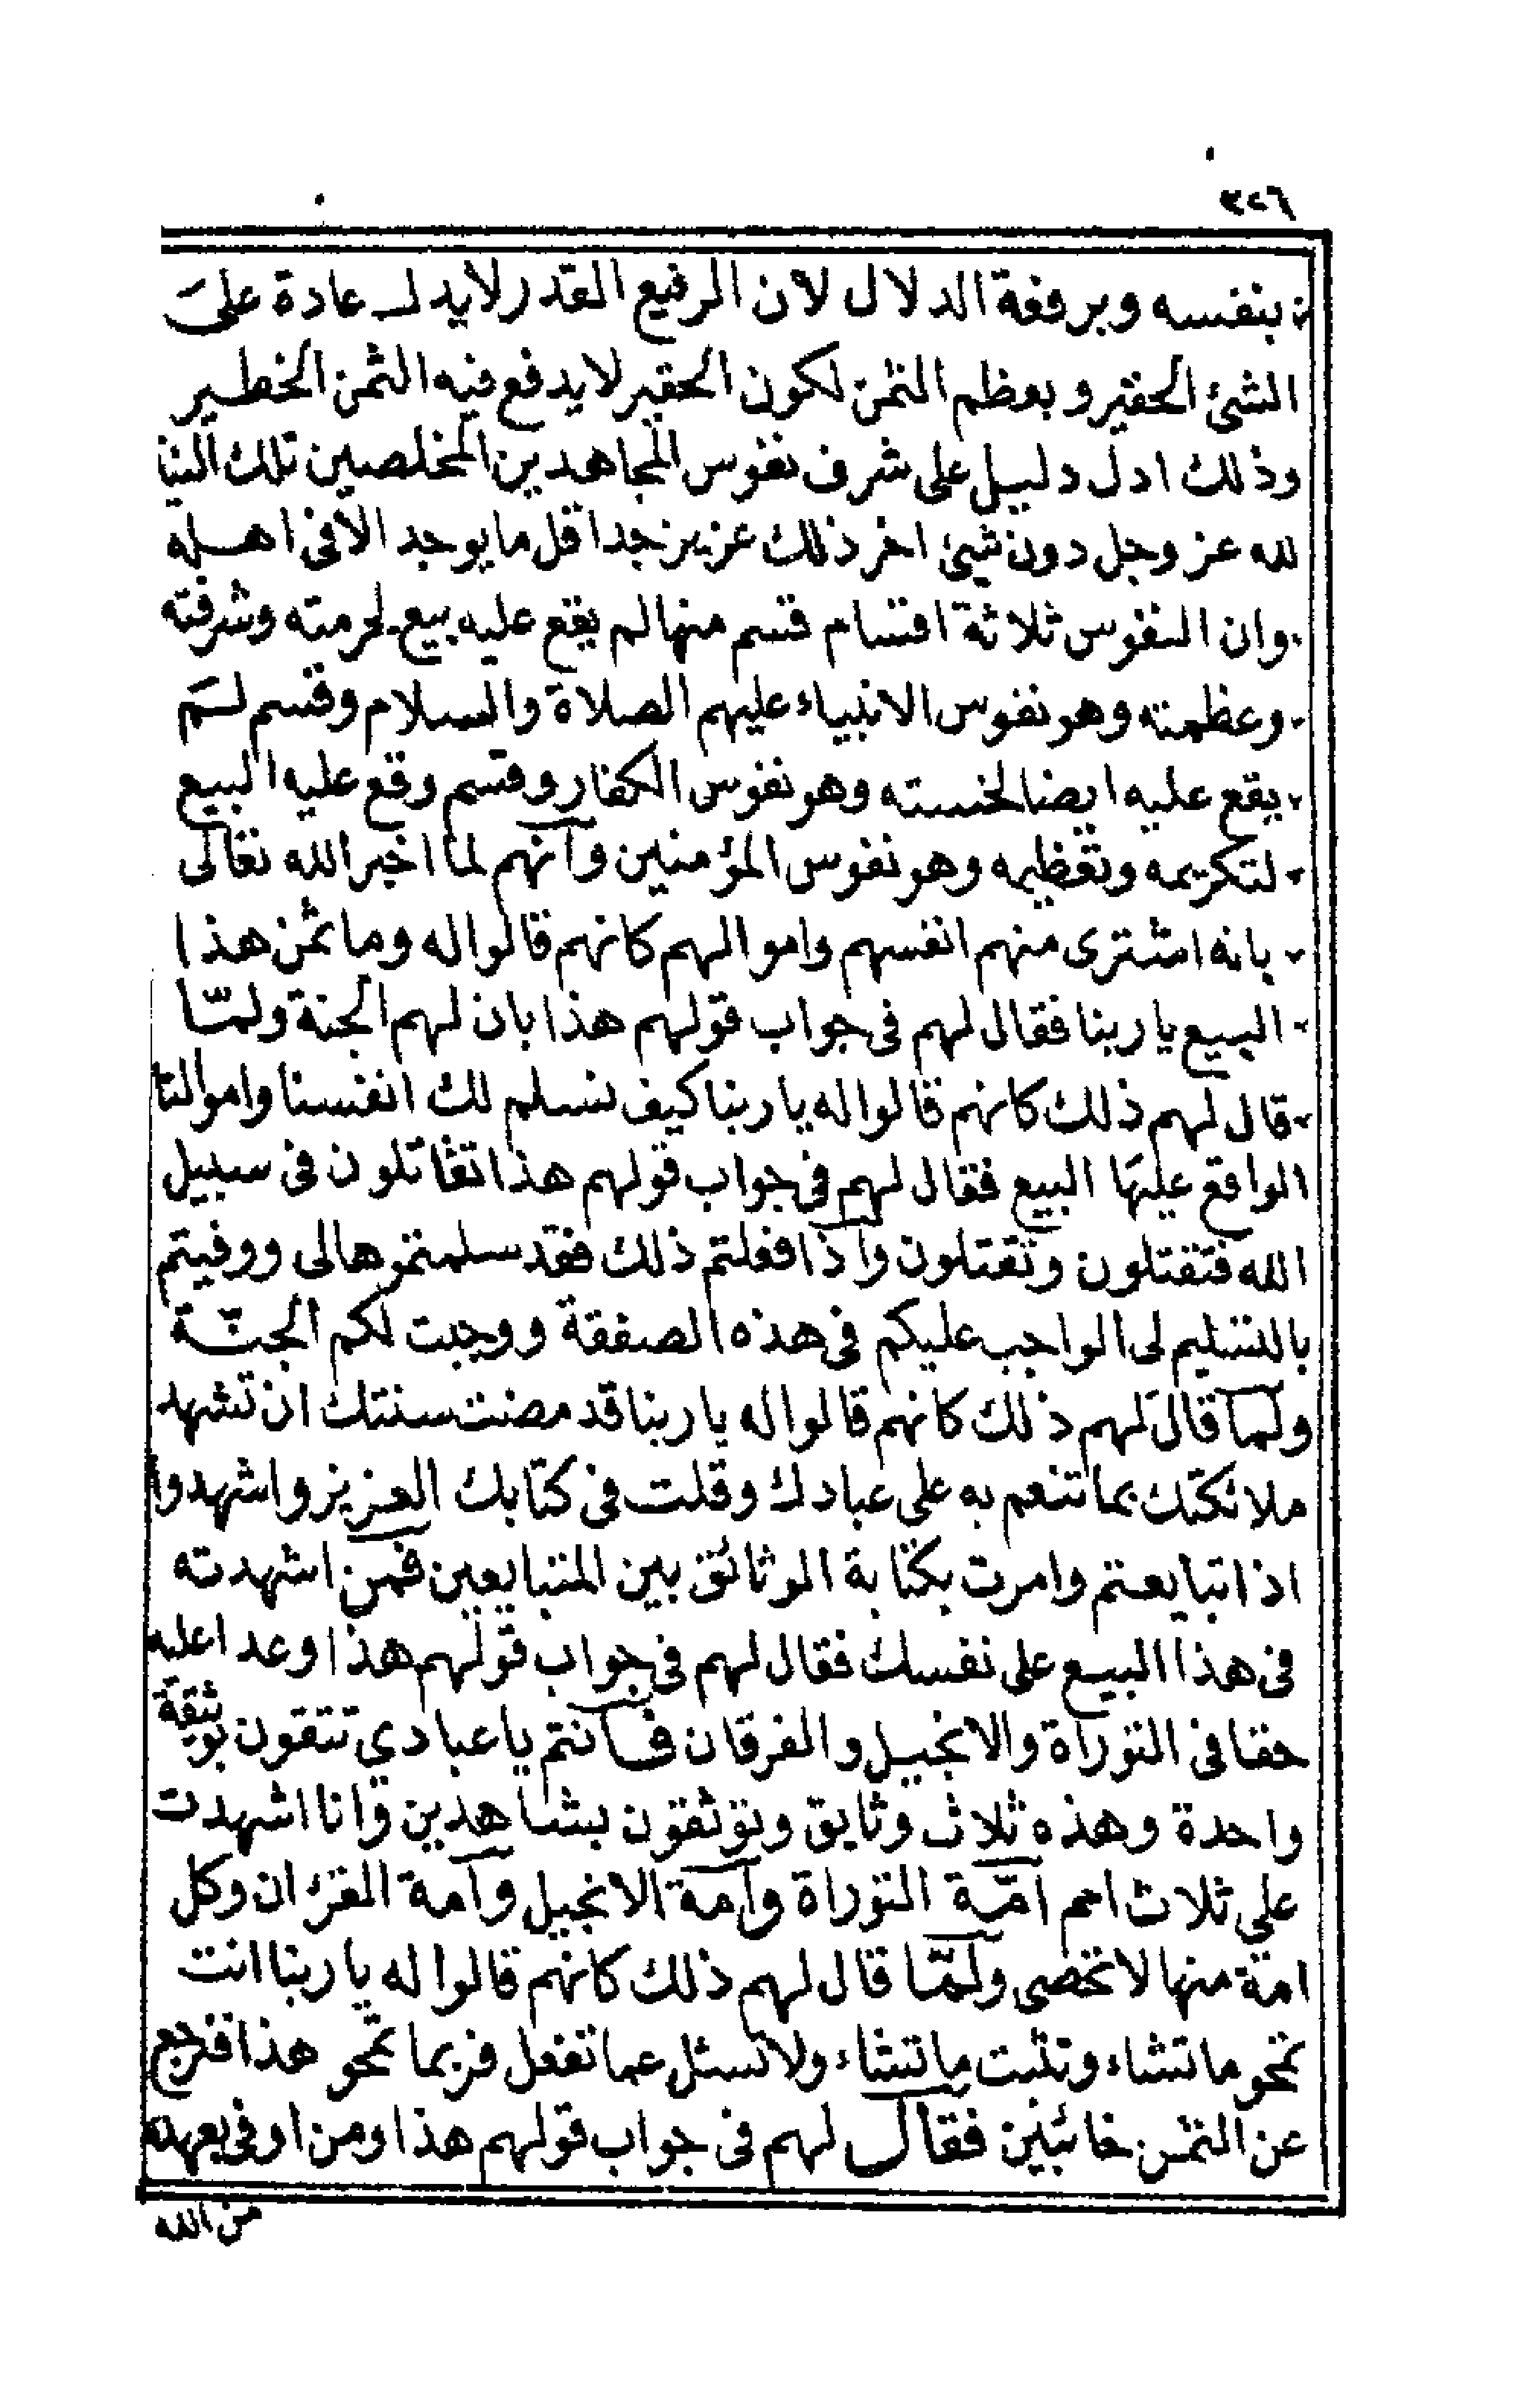 ٣٢٦
بنفسه وبرفعة الدلال لان الرفيع القدر لا يدل عادة على
الشئ الحقير وبعظم الثمن لكون الحقير لا يدفع فيه الثمن الخطير
وذلك ادل دليل على شرف نفوس المجاهدين المخلصين تلك
لله عز وجل دون شيئ اخر ذلك عزيز جدا قل ما يوجد الا فى اهله
وان النفوس ثلاثة اقسام قسم منها لم يقع عليه بيع لحرمته وشرفته
وعظمته وهو نفوس الانبياء عليهم الصلاة والسلام وقسم لم
يقع عليه ايضا لخسته وهو نفوس الكفار وقسم وقع عليه البيع
لتكريمه وتعظيمه وهو نفوس المؤمنين وانهم لما اخبر الله تعالى
بانه اشترى منهم انفسهم واموالهم كانهم قالوا له وما ثمن هذا
البيع يا ربنا فقال لهم فى جواب قولهم هذا بان لهم الجنة ولمّا
قال لهم ذلك كانهم قالوا له يا ربنا كيف نسلم لك انفسنا واموالنا
الواقع عليها البيع فقال لهم فى جواب قولهم هذا تقاتلون فى سبيل
الله فتقتلون وتقتلون واذا فعلتم ذلك فقد سلمتموها لى ووفيتم
بالتسليم لى الواجب عليكم فى هذه الصفقة ووجبت لكم الجنّة
ولما قال لهم ذلك كانهم قالوا له يا ربنا قد مضت سنتك ان تشهد
ملائكتك بما تنعم به على عبادك وقلت فى كتابك العزيز واشهدوا
اذا تبايعتم وامرت بكتابة الوثائق بين المتبايعين فمن اشهدته
فى هذا البيع على نفسك فقال لهم فى جواب قولهم هذا وعدا عليه
حقا فى التوراة والانجيل والفرقان فانتم يا عبادي تتقون بوثيقة
واحدة وهذه ثلاث وثايق وتوثقون بشاهدين وانا اشهدت
على ثلاث امم امّة التوراة وامة الانجيل وامة القران وكل
امة منها لا تحصى ولمّا قال لهم ذلك كانهم قالوا له يا ربنا انت
تمحو ما تشاء وتثبت ما تشاء ولا تسئل عما تفعل فربما تمحو هذا فنرجع
عن الثمن خائبين فقال لهم فى جواب قولهم هذا ومن اوفى بعهده
من الله